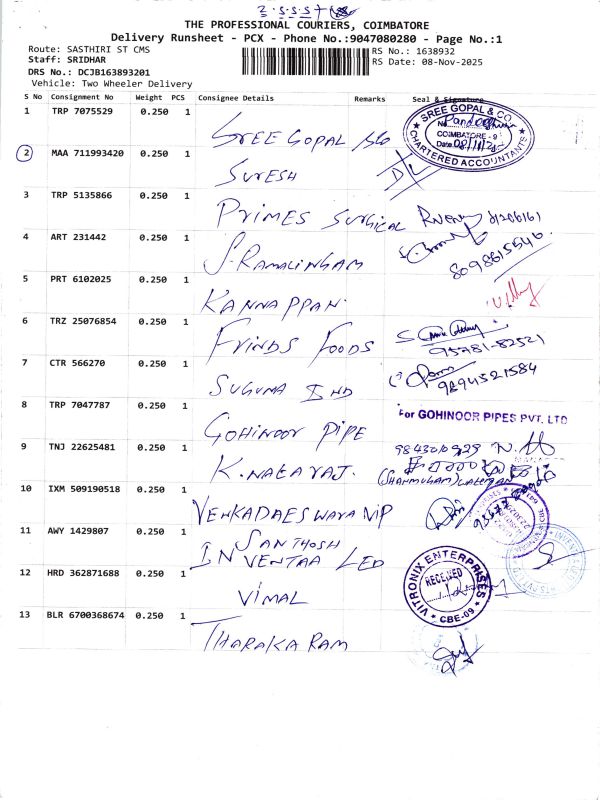 THE PROFESSIONAL COURIERS, COIMBATORE
Delivery Runsheet - PCX - Phone No.:9047080280 - Page No.:1
Route: SASTHIRI ST CMS
RS No.: 1638932
Staff: SRIDHAR
RS Date: 08-Nov-2025
DRS No.: DCJB163893201
Vehicle: Two Wheeler Delivery
S No Consignment No Weight PCS Consignee Details Remarks Seal & Signature
1 TRP 7075529 0.250 1 SREE GOPAL &Co
SREE GOPAL & CO
COIMBATORE - 9
Date: 08/11/25
CHARTERED ACCOUNTANTS
2 MAA 711993420 0.250 1 SURESH
3 TRP 5135866 0.250 1 PRIMES SURGICAL
4 ART 231442 0.250 1 S.RAMALINGAM 8098615546
5 PRT 6102025 0.250 1 KANNAPPAN.
6 TRZ 25076854 0.250 1 FRINDS FOODS 95781-82521
7 CTR 566270 0.250 1 SUGUMA IND 9894521584
8 TRP 7047787 0.250 1 GOHINOOR PIPE For GOHINOOR PIPES PVT. LTD
9 TNJ 22625481 0.250 1 K.NATARAJ.
10 IXM 509190518 0.250 1 VENKADAESWARA NP
SANTHOSH
11 AWY 1429807 0.250 1 INVENTAA LED
12 HRD 362871688 0.250 1 VIMAL
VITRONIX ENTERPRISES
RECEIVED
CBE-09
13 BLR 6700368674 0.250 1 THARAKA RAM